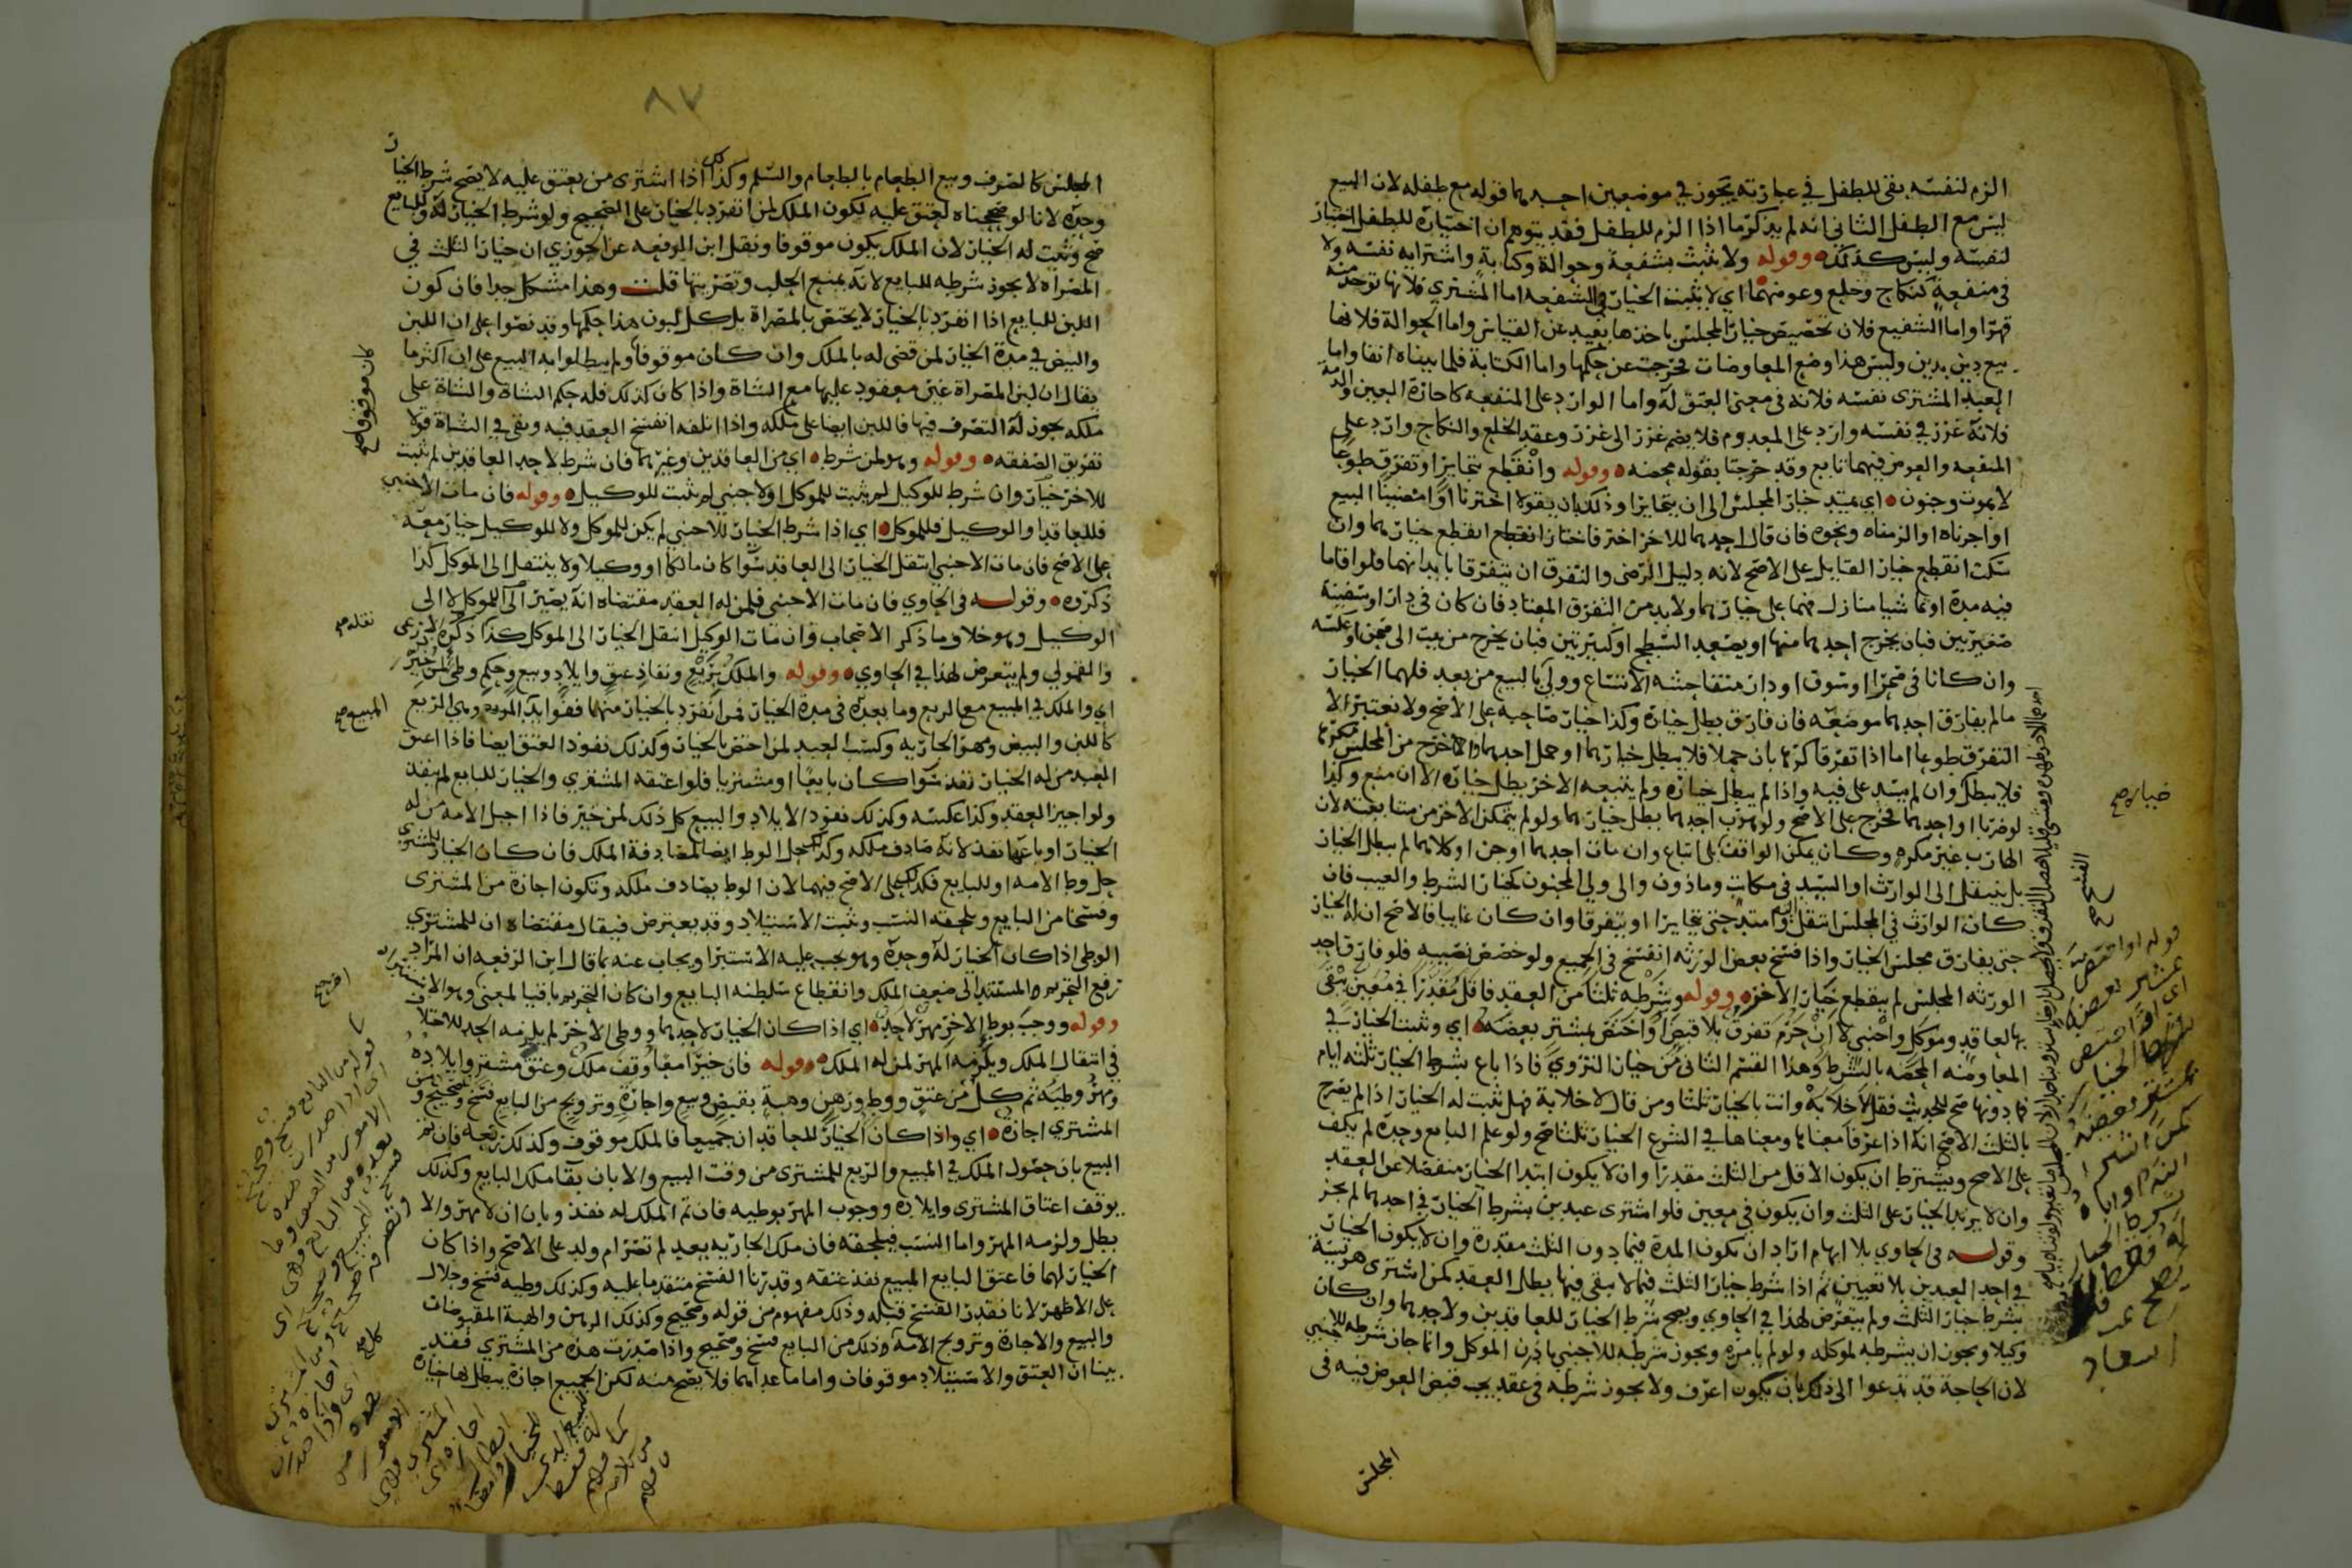 الزم لنفسه بقى للطفل في عبارته تجوز في موضعين احدهما قوله مع طفله لان البيع
ليس مع الطفل الثاني انه لم يذكر ما اذا الزم للطفل فقد يتوهم ان اختياره للطفل اختيار
لنفسه وليس كذلك وقوله ولا تثبت بشفعة وحوالة وكتابة واشترايه نفسه ولا
في منفعة كنكاح وخلع وعوضهما اي لا يثبت الخيار في الشفعه اما المشتري فلانها توخذ منه
قهرا واما الشفيع فلان تخصيص خيار المجلس باحدهما بعيد عن القياس واما الحوالة فلانها
بيع دين بدين وليس هذا وضع المعاوضات فخرجت عن حكمها واما الكتابة فلما بيناه انفا واما
العبد المشتري نفسه فلانه في معنى العتق له واما الوارد على المنفعه كاجارة العين والذمة
فلانه غرر في نفسه وارد على المعدوم فلا يضم غرر الى غرر وعقد الخلع والنكاح وارد على
المنفعه والعوض فيهما تابع وقد خرجتا بقوله محضه وقوله وانقطع بتخايرا وتفرق طوعا
لا بموت وجنون اي يمتد خيار المجلس الى ان يتخايرا وذلك بان يقولا اخترنا او امضينا البيع
او اجزناه او الزمناه ونحوه فان قال احدهما للاخر اختر فاختار انقطع انقطع خيارهما وان
سكت انقطع خيار القايل على الاصح لانه دليل الرضى والتفرق ان يتفرقا بابدانهما فلو اقاما
فيه مدة او تماشيا منازل فهما على خيارهما ولا بد من التفرق المعتاد فان كان في دار او سفينة
صغيرتين فبان يخرج احدهما منها او يصعد السطح او كبيرتين فبان يخرج من بيت الى صحن او عكسه
وان كانا في صحرا او سوق او دار متفاحشه الاتساع وولي بالبيع من بعد فلهما الخيار
ما لم يفارق احدهما موضعه فان فارق بطل خياره وكذا خيار صاحبه على الاصح ولا نعتبر الا
التفرق طوعا اما اذا تفرقا كرها بان حملا فلا يبطل خيارهما او حمل احدهما واخرج من المجلس مكرها
فلا يبطل وان لم يسد على فيه واذا لم يبطل خياره ولم يتبعه الاخر بطل خياره الا ان منع وكذا
لو ضربا او احدهما فخرج على الاصح ولو هرب احدهما بطل خيارهما ولو لم يتمكن الاخر من متابعته لان
الهارب غير مكره وكان يمكن الواقف على اتباع وان مات احدهما او جن او كلاهما لم يبطل الخيار
بل ينتقل الى الوارث او السيد في مكاتب وماذون والى ولي المجنون كخيار الشرط والعيب فان
كان الوارث في المجلس انتقل وامتد حتى يتخايرا او يتفرقا وان كان غايبا فالاصح ان له الخيار
حتى يفارق مجلس الخيار واذا فسخ بعض الورثه انفسخ في الجميع ولو خصص نصيبه فلو فارق احد
الورثه المجلس لم ينقطع خيار الاخر وقوله وشرطه ثلثا من العقد فاقل مقدرا في معين تبقى
بها لعاقد وموكل واجنبي لا ان حرم تفرق بلا قبض او اختص بمشتر بعضه اي وثبت الخيار في
المعاوضه المحضه بالشرط وهذا القسم الثاني من خيار التروي فاذا باع بشرط الخيار ثلثه ايام
فما دونها صح للحديث فقل لا خلابة وانت بالخيار ثلثا ومن قال لا خلابة فهل ثبت له الخيار اذا لم يصرح
بالثلث الاصح انه اذا عرفا معناها ومعناها في الشرع الخيار ثلثا صح ولو علم البايع وحده لم يكف
على الاصح ويشترط ان يكون الاقل من الثلث مقدرا وان لا يكون ابتدا الخيار منفصلا عن العقد
وان لا يزيد الخيار على الثلث وان يكون في معين فلو اشترى عبدين بشرط الخيار في احدهما لم يجز
وقوله في الحاوي بلا ابهام اراد ان تكون المدة فيما دون الثلث مقدرة وان لا يكون الخيار
في احد العبدين بلا تعيين ثم اذا شرط خيار الثلث فيما لا يبقى فيها بطل العقد كمن اشترى هريسة
بشرط خيار الثلث ولم يتعرض لهذا في الحاوي ويصح شرط الخيار للعاقدين ولاحدهما وان كان
وكيلا ويجوز ان يشرطه لموكله ولو لم يامره ويجوز شرطه للاجنبي باذن الموكل وانما جاز شرطه للاجنبي
لان الحاجة قد تدعوا الى ذلك بان يكون اعرف ولا يجوز شرطه في عقد يجب قبض العوض فيه في
المجلس
خيارلا صح
الفسخ صح
٨٧
المجلس كالصرف وبيع الطعام بالطعام والسلم وكذا اذا اشترى من يعتق عليه لا يصح شرط الخيار
وحده لانا لو صححناه لعتق عليه لكون الملك لمن انفرد بالخيار على الصحيح ولو شرط الخيار له وللبايع
صح وثبت له الخيار لان الملك يكون موقوفا ونقل ابن الرفعه عن الجوزي ان خيار الثلث في
المصراة لا يجوز شرطه للبايع لانه يمنع الحلب وتضر بها قلت وهذا مشكل جدا فان كون
اللبن للبايع اذا انفرد بالخيار لا يختص بالمصراة بل كل لبون هذا حكمها وقد نصوا على ان اللبن
والبيض في مدة الخيار لمن قضى له بالملك وان كان موقوفا ولم يبطلوا به البيع على ان اكثر ما
يقال ان لبن المصراة غير معقود عليها مع الشاة واذا كان كذلك فله حكم الشاة والشاة على
ملكه يجوز له التصرف فيها فاللبن ايضا على ملكه واذا اتلفه انفسخ العقد فيه وبقي في الشاة قولا
تفريق الصفقه وقوله وهو لمن شرط اي من العاقدين وغيرهما فان شرط لاحد العاقدين لم يثبت
للاخر خيار وان شرط للوكيل لم يثبت للموكل او لاجنبي لم يثبت للوكيل وقوله فان مات الاجنبي
فللعاقد او الوكيل فللموكل اي اذا شرط الخيار للاجنبي لم يكن للموكل ولا للوكيل خيار معه
على الاصح فان مات الاجنبي انتقل الخيار الى العاقد سوا كان مالكا او وكيلا ولا ينتقل الى الموكل كذا
ذكروه وقوله في الحاوي فان مات الاجنبي فلمن له العقد مقتضاه انه يصير الى الموكل لا الى
الوكيل وهو خلاف ما ذكر الاصحاب وان مات الوكيل انتقل الخيار الى الموكل كذا ذكره الاذرعي
والقمولي ولم يتعرض لهذا في الحاوي وقوله والملك بريع ونفاذ عتق وايلاد وبيع وحكم وطئ لمن خير
اي والملك في المبيع مع الريع وما بعده في مدة الخيار لمن انفرد بالخيار منهما ففوايد المبيع وهي الريع
كاللبن والبيض ومهر الجاريه وكسب العبد لمن اختص بالخيار وكذلك نفوذ العتق ايضا فاذا اعتق
العبد من له الخيار نفذ سوا كان بايعا او مشتريا فلو اعتقه المشتري والخيار للبايع لم ينفذ
ولو اجيز العقد وكذا عكسه وكذلك نفوذ الايلاد والبيع كل ذلك لمن خير فاذا احبل الامه من له
الخيار او باعها نفذ لانه صادف ملكه وكذلك حل الوط ايضا لمصادفة الملك فان كان الخيار للمشتري
حل وط الامه او للبايع فكذلك على الاصح فيهما لان الوط يصادف ملكه وتكون اجازة من المشتري
وفسخا من البايع ويلحقه النسب وثبت الاستيلاد وقد يعترض فيقال مقتضاه ان للمشتري
الوطي اذا كان الخيار له وحده وهو يجب عليه الاستبرا ويجاب عنه بما قال ابن الرفعه ان المراد
رفع التحريم المستند الى ضعف الملك وانقطاع سلطنه البايع وان كان التحريم باقيا لمعنى وهو الاستبرا
وقوله ووجب بوط الاخر مهر لاحد اي اذا كان الخيار لاحدهما ووطى الاخر لم يلزمه الحد للاختلاف
في انتقال الملك ويلزمه المهر لمن له الملك وقوله فان خيرا معا وقف ملك وعتق مشتر وايلاده
ومهر وطئه ثم كل من عتق ووط ورهن وهبة بقبض وبيع واجارة وتزويج من البايع فسخ وصحيح ومن
المشتري اجازة اي واذا كان الخيار للعاقدان جميعا فالملك موقوف وكذلك ريعه فان تم
البيع بان حصول الملك في المبيع والريع للمشتري من وقت البيع والا بان بقا ملك البايع وكذلك
يوقف اعتاق المشتري وايلاده ووجوب المهر بوطيه فان تم الملك له نفذ وبان ان لا مهر والا
بطل ولزمه المهر واما النسب فيلحقه فان ملك الجاريه بعد لم تصر ام ولد على الاصح واذا كان
الخيار لهما فاعتق البايع المبيع نفذ عتقه وقدرنا الفسخ متقدما عليه وكذلك وطيه فسخ وحلال
على الاظهر لانا نقدر الفسخ قبله وذلك مفهوم من قوله وصحيح وكذلك الرهن والهبة المقبوضات
والبيع والاجارة وتزويج الامه وذلك من البايع فسخ وصحيح واذا صدرت هذه من المشتري فقد
بينا ان العتق والاستيلاد موقوفان واما ما عداهما فلا يصح منه لكن الجميع اجازة يبطل بها خياره
كان موقوفا صح
المبيع صح